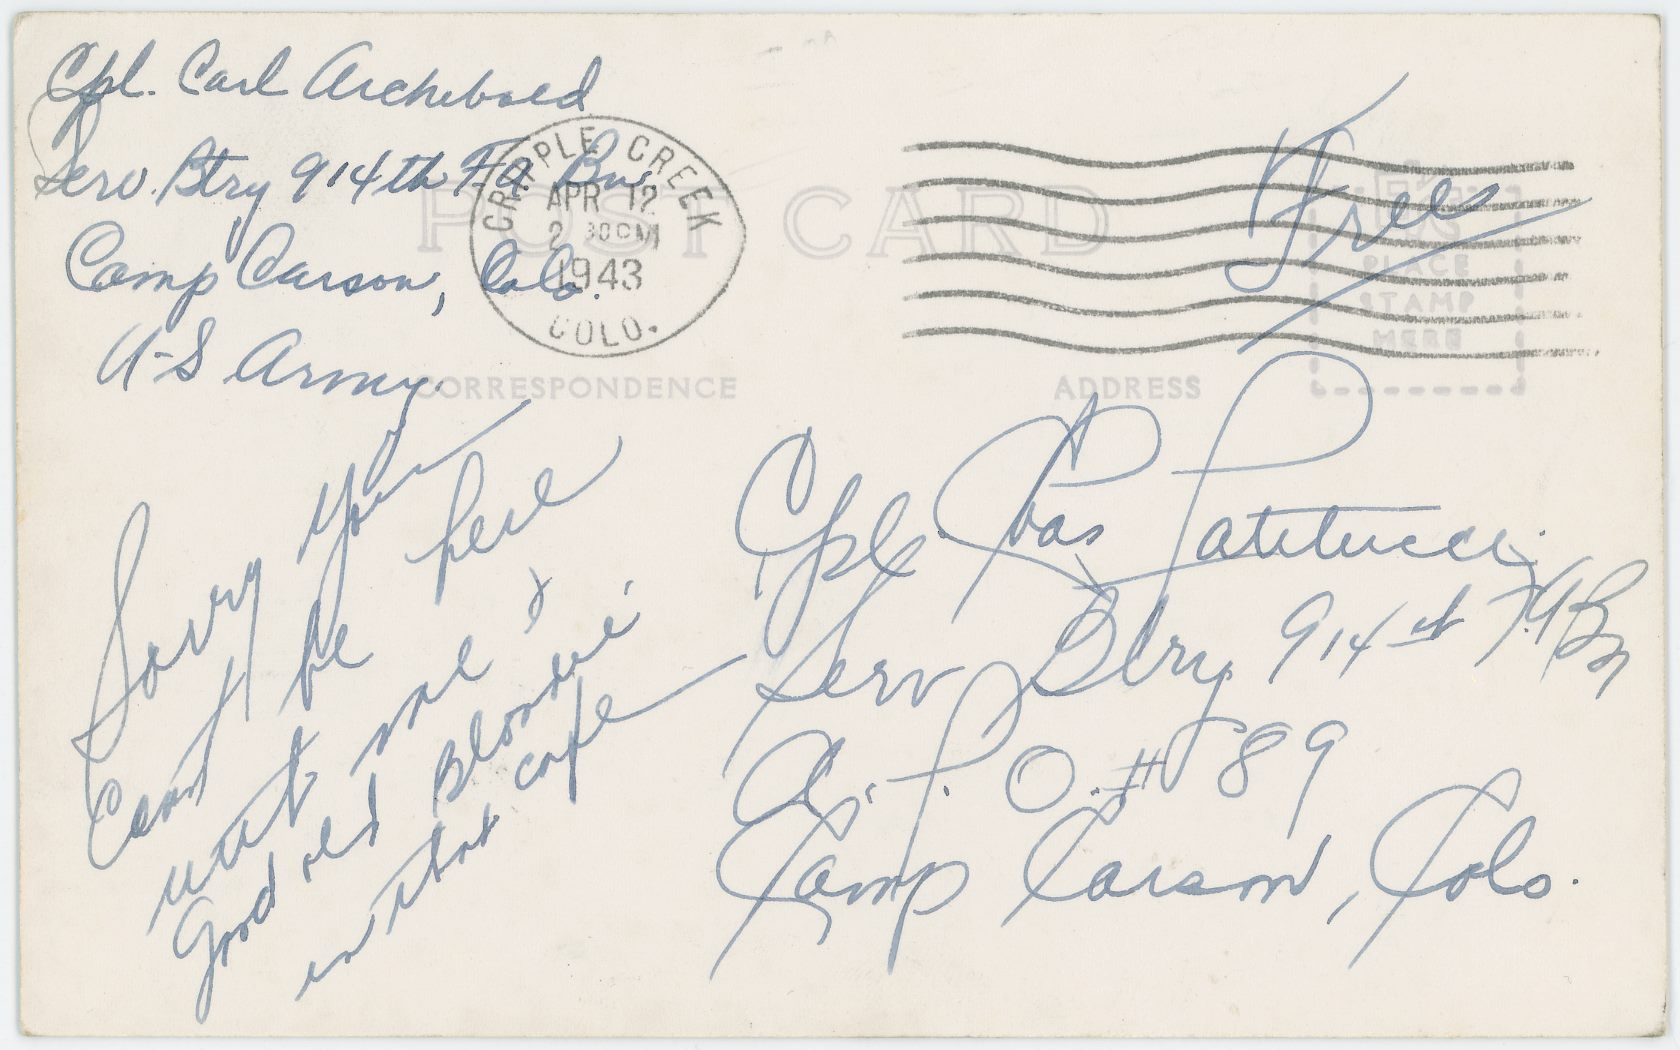 Cpl. Carl Archebald
Serv. Btry 914th Fa Bn.
Camp Carson, Colo.
U-S Army.
CRIPPLE CREEK
APR 12
2 30 PM
1943
COLO.
POST CARD
Free
PLACE
STAMP
HERE
CORRESPONDENCE
ADDRESS
Sorry your
Cant be here
with me &
Good old Blondie
in that cafe
Cpl. Chas Patitucci
Serv Btry 914th F.A Bn
A. P. O. # 89
Camp Carson, Colo.